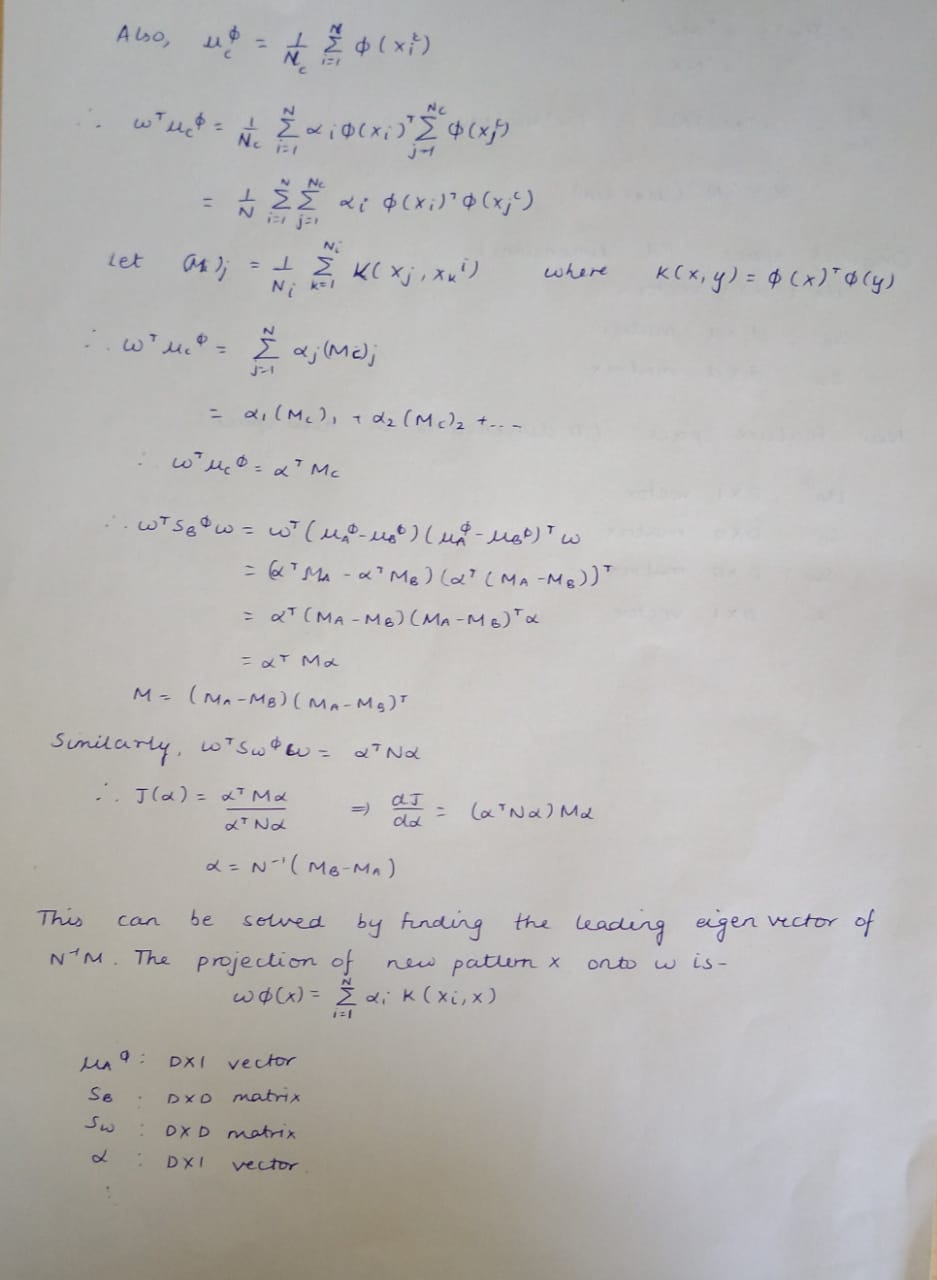 Also, μ_c^φ = 1/N_c Σ_{i=1}^{N} φ(x_i^c)
∴ w^T μ_c^φ = 1/N_c Σ_{i=1}^{N} α_i φ(x_i)^T Σ_{j=1}^{N_c} φ(x_j^c)
= 1/N Σ_{i=1}^{N} Σ_{j=1}^{N_c} α_i φ(x_i)^T φ(x_j^c)
Let )_j = 1/N_i Σ_{k=1}^{N_i} K(x_j, x_k^i) where K(x, y) = φ(x)^T φ(y)
∴ w^T μ_c^φ = Σ_{j=1}^{N} α_j (M_c)_j
= α_1 (M_c)_1 + α_2 (M_c)_2 + ...
∴ w^T μ_c^φ = α^T M_c
∴ w^T S_B^φ w = w^T (μ_A^φ - μ_B^φ) (μ_A^φ - μ_B^φ)^T w
= (α^T M_A - α^T M_B) (α^T (M_A - M_B))^T
= α^T (M_A - M_B) (M_A - M_B)^T α
= α^T M α
M = (M_A - M_B) (M_A - M_B)^T
Similarly, w^T S_w^φ w = α^T N α
∴ J(α) = α^T M α / α^T N α ⇒ dJ/dα = (α^T N α) M α
α = N^{-1} (M_B - M_A)
This can be solved by finding the leading eigen vector of
N^{-1} M. The projection of new pattern x onto w is -
w φ(x) = Σ_{i=1}^{N} α_i K(x_i, x)
μ_A^φ : D×1 vector
S_B : D×D matrix
S_w : D×D matrix
α : D×1 vector